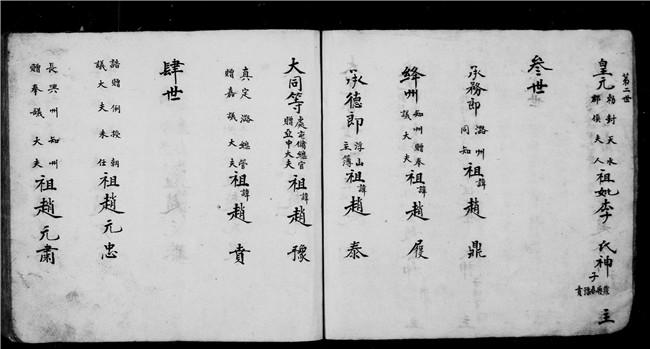 第二世
皇元勅封天水郡侯夫人祖妣李氏神主
子鼎履泰豫賁
叁世
承務郎潞州同知祖諱趙鼎
絳州知州贈奉議大夫祖諱趙履
承德郎浮山主簿祖諱趙泰
大同等處屯儲總官贈亞中大夫祖諱趙豫
真定潞總管贈嘉議大夫祖諱趙賁
肆世
誥贈例授朝議大夫未任祖趙元忠
長興州知州贈奉議大夫祖趙元肅